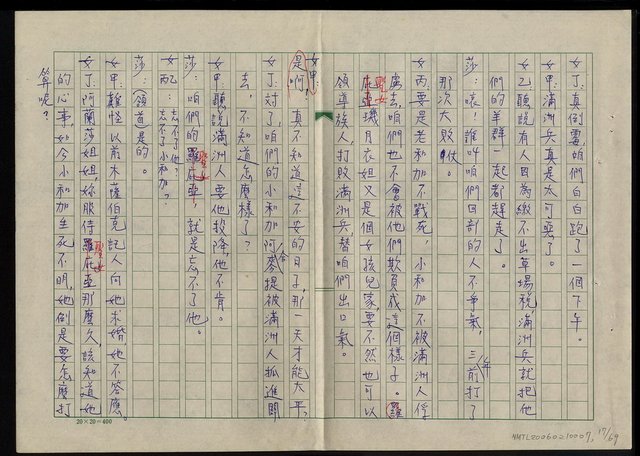 女丁：真倒霉，咱們白白跑了一個下午。
女甲：滿洲兵真是太可惡了。
女乙：聽說有人因為繳不出草場稅，滿洲兵就把他
們的羊群一起都趕走了。
莎：唉！誰叫咱們回部的人不爭氣，三年前打了
那次大敗仗。
女丙：要是老和加不戰死，小和加不被滿洲人俘
虜去，咱們也不會被他們欺負成這個樣子。羅
庇亞聖女璣月衣妲又是個女孩兒家，要不然也可以
領導族人，打敗滿洲兵，替咱們出口氣。
女甲：
是啊，真不知道這不安的日子，那一天才能太平？
女丁：對了，咱們的小和加阿麥哈提被滿洲人抓進關
去，不知道怎麼樣了？
女甲：聽說滿洲人要他投降，他不肯。
莎：咱們的羅庇亞聖女，就是忘不了他。
女丙：忘不了他？
忘不了小和加？
莎：（領首）是的。
女甲：難怪以前木薩伯克託人向她求婚她不答應。
女丁：阿蘭莎姐姐，妳服侍羅庇亞聖女那麼久，該知道她
的心事，如今小和加生死不明，她倒是要怎麼打
算呢？
20×20=400
NMTL20060210007
17/69